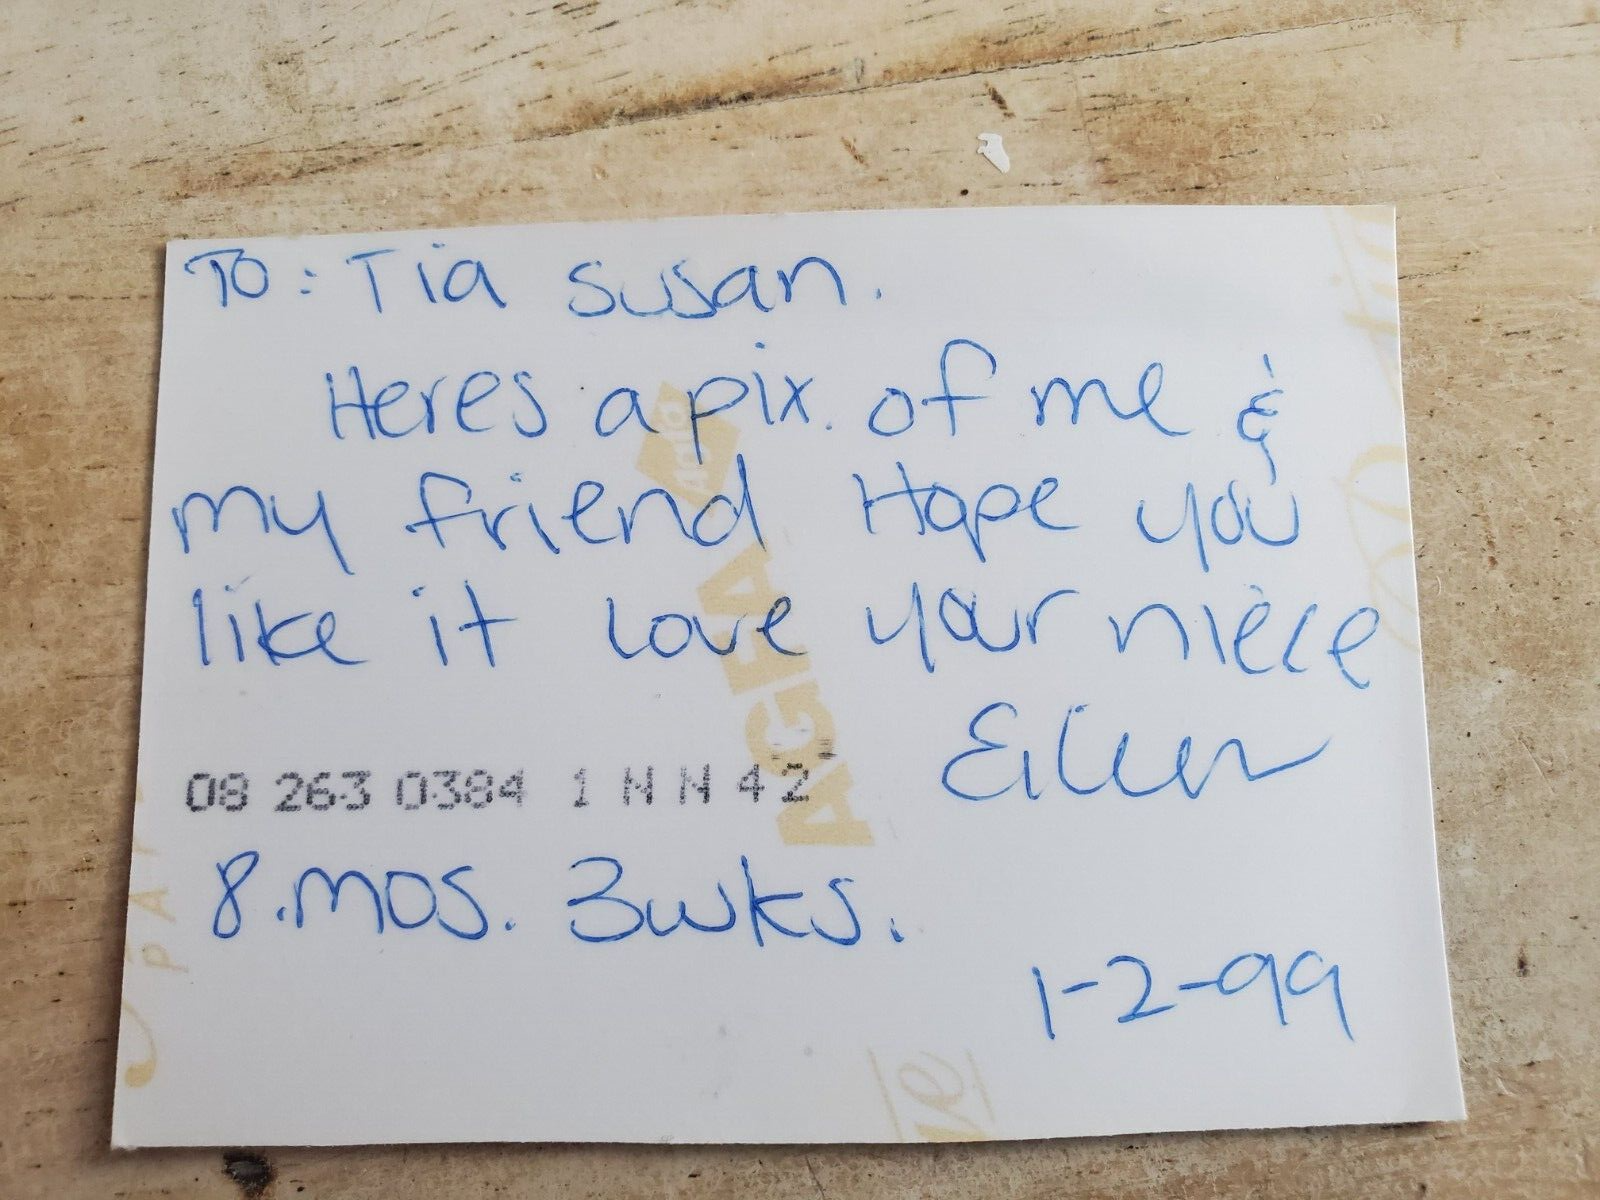 TO: Tia Susan.
Heres a pix. of me &
my friend Hope you
like it Love your niece
Eileen
08 263 0384 1 N N 42
8.mos. 3wks.
1-2-99
AGFA